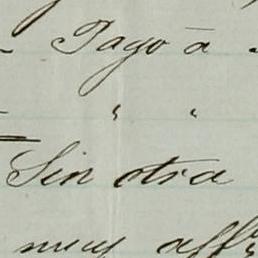 Pago á
" "
Sin otra
muy aff